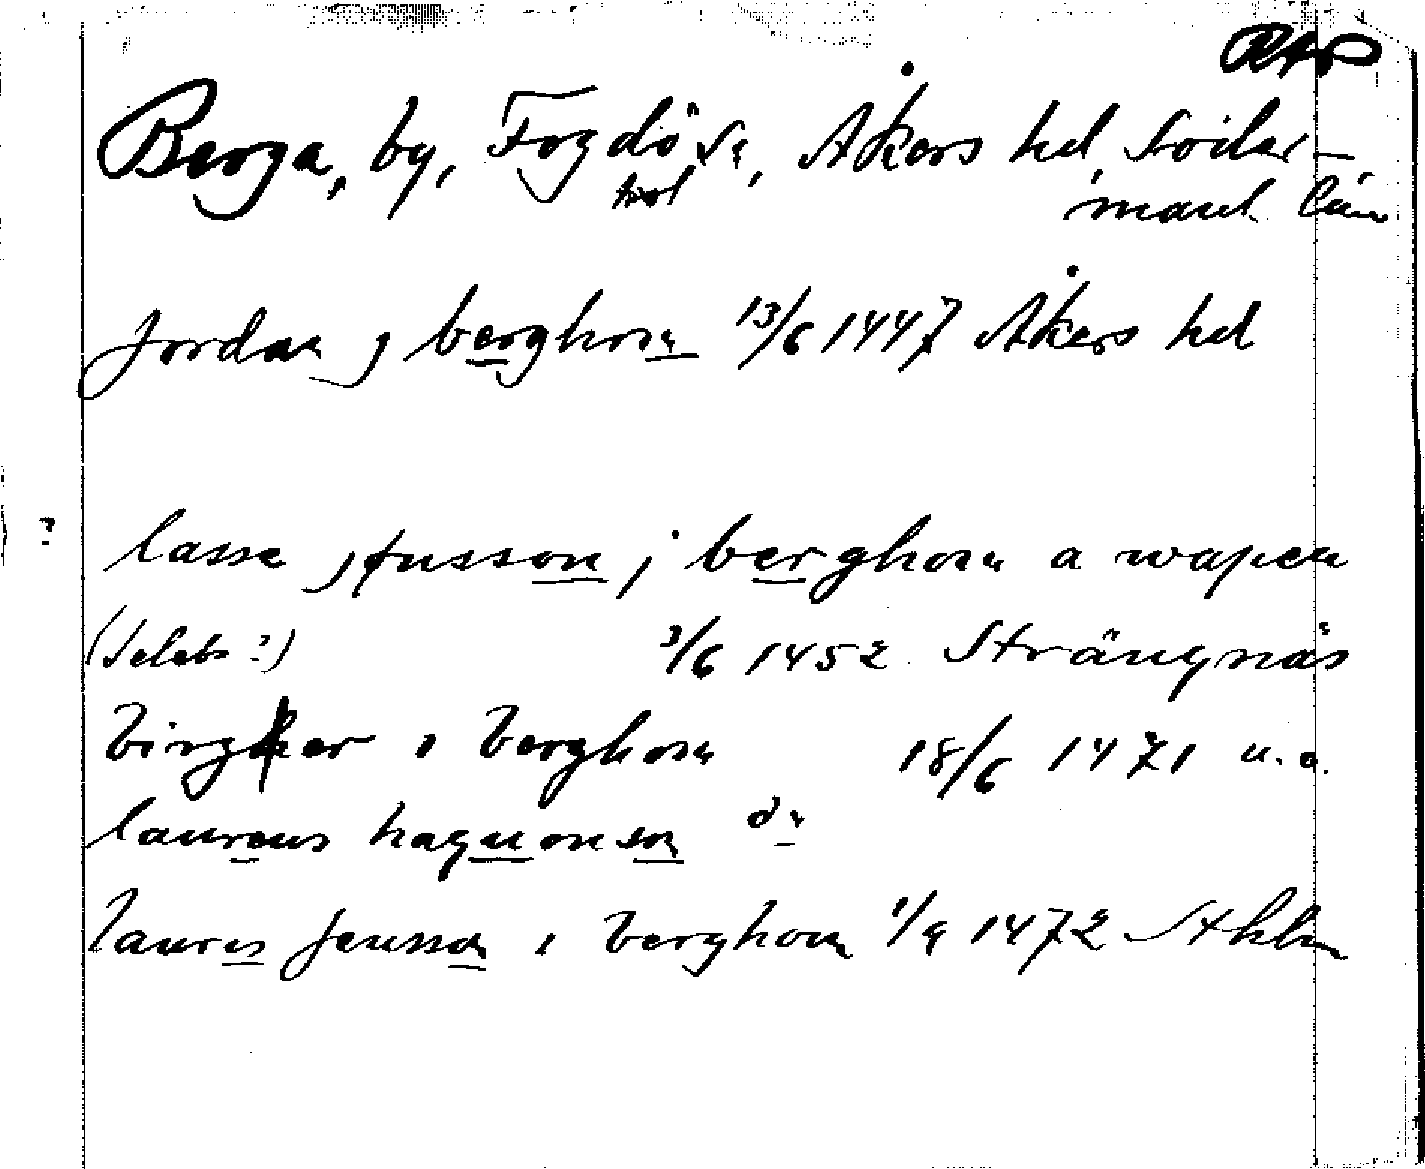 Berga, by, Fogdö sn, Åkers hd, Söder-
manl. län
jordan j berghom 13/6 1447 Åkers hd
? lasse jfusson j berghom a wapen
3/6 1452 Strängnäs
birgher i berghom 18/6 1471 u.o.
laurens haquonson do
laures jensson i berghom 1/9 1472 Sthlm